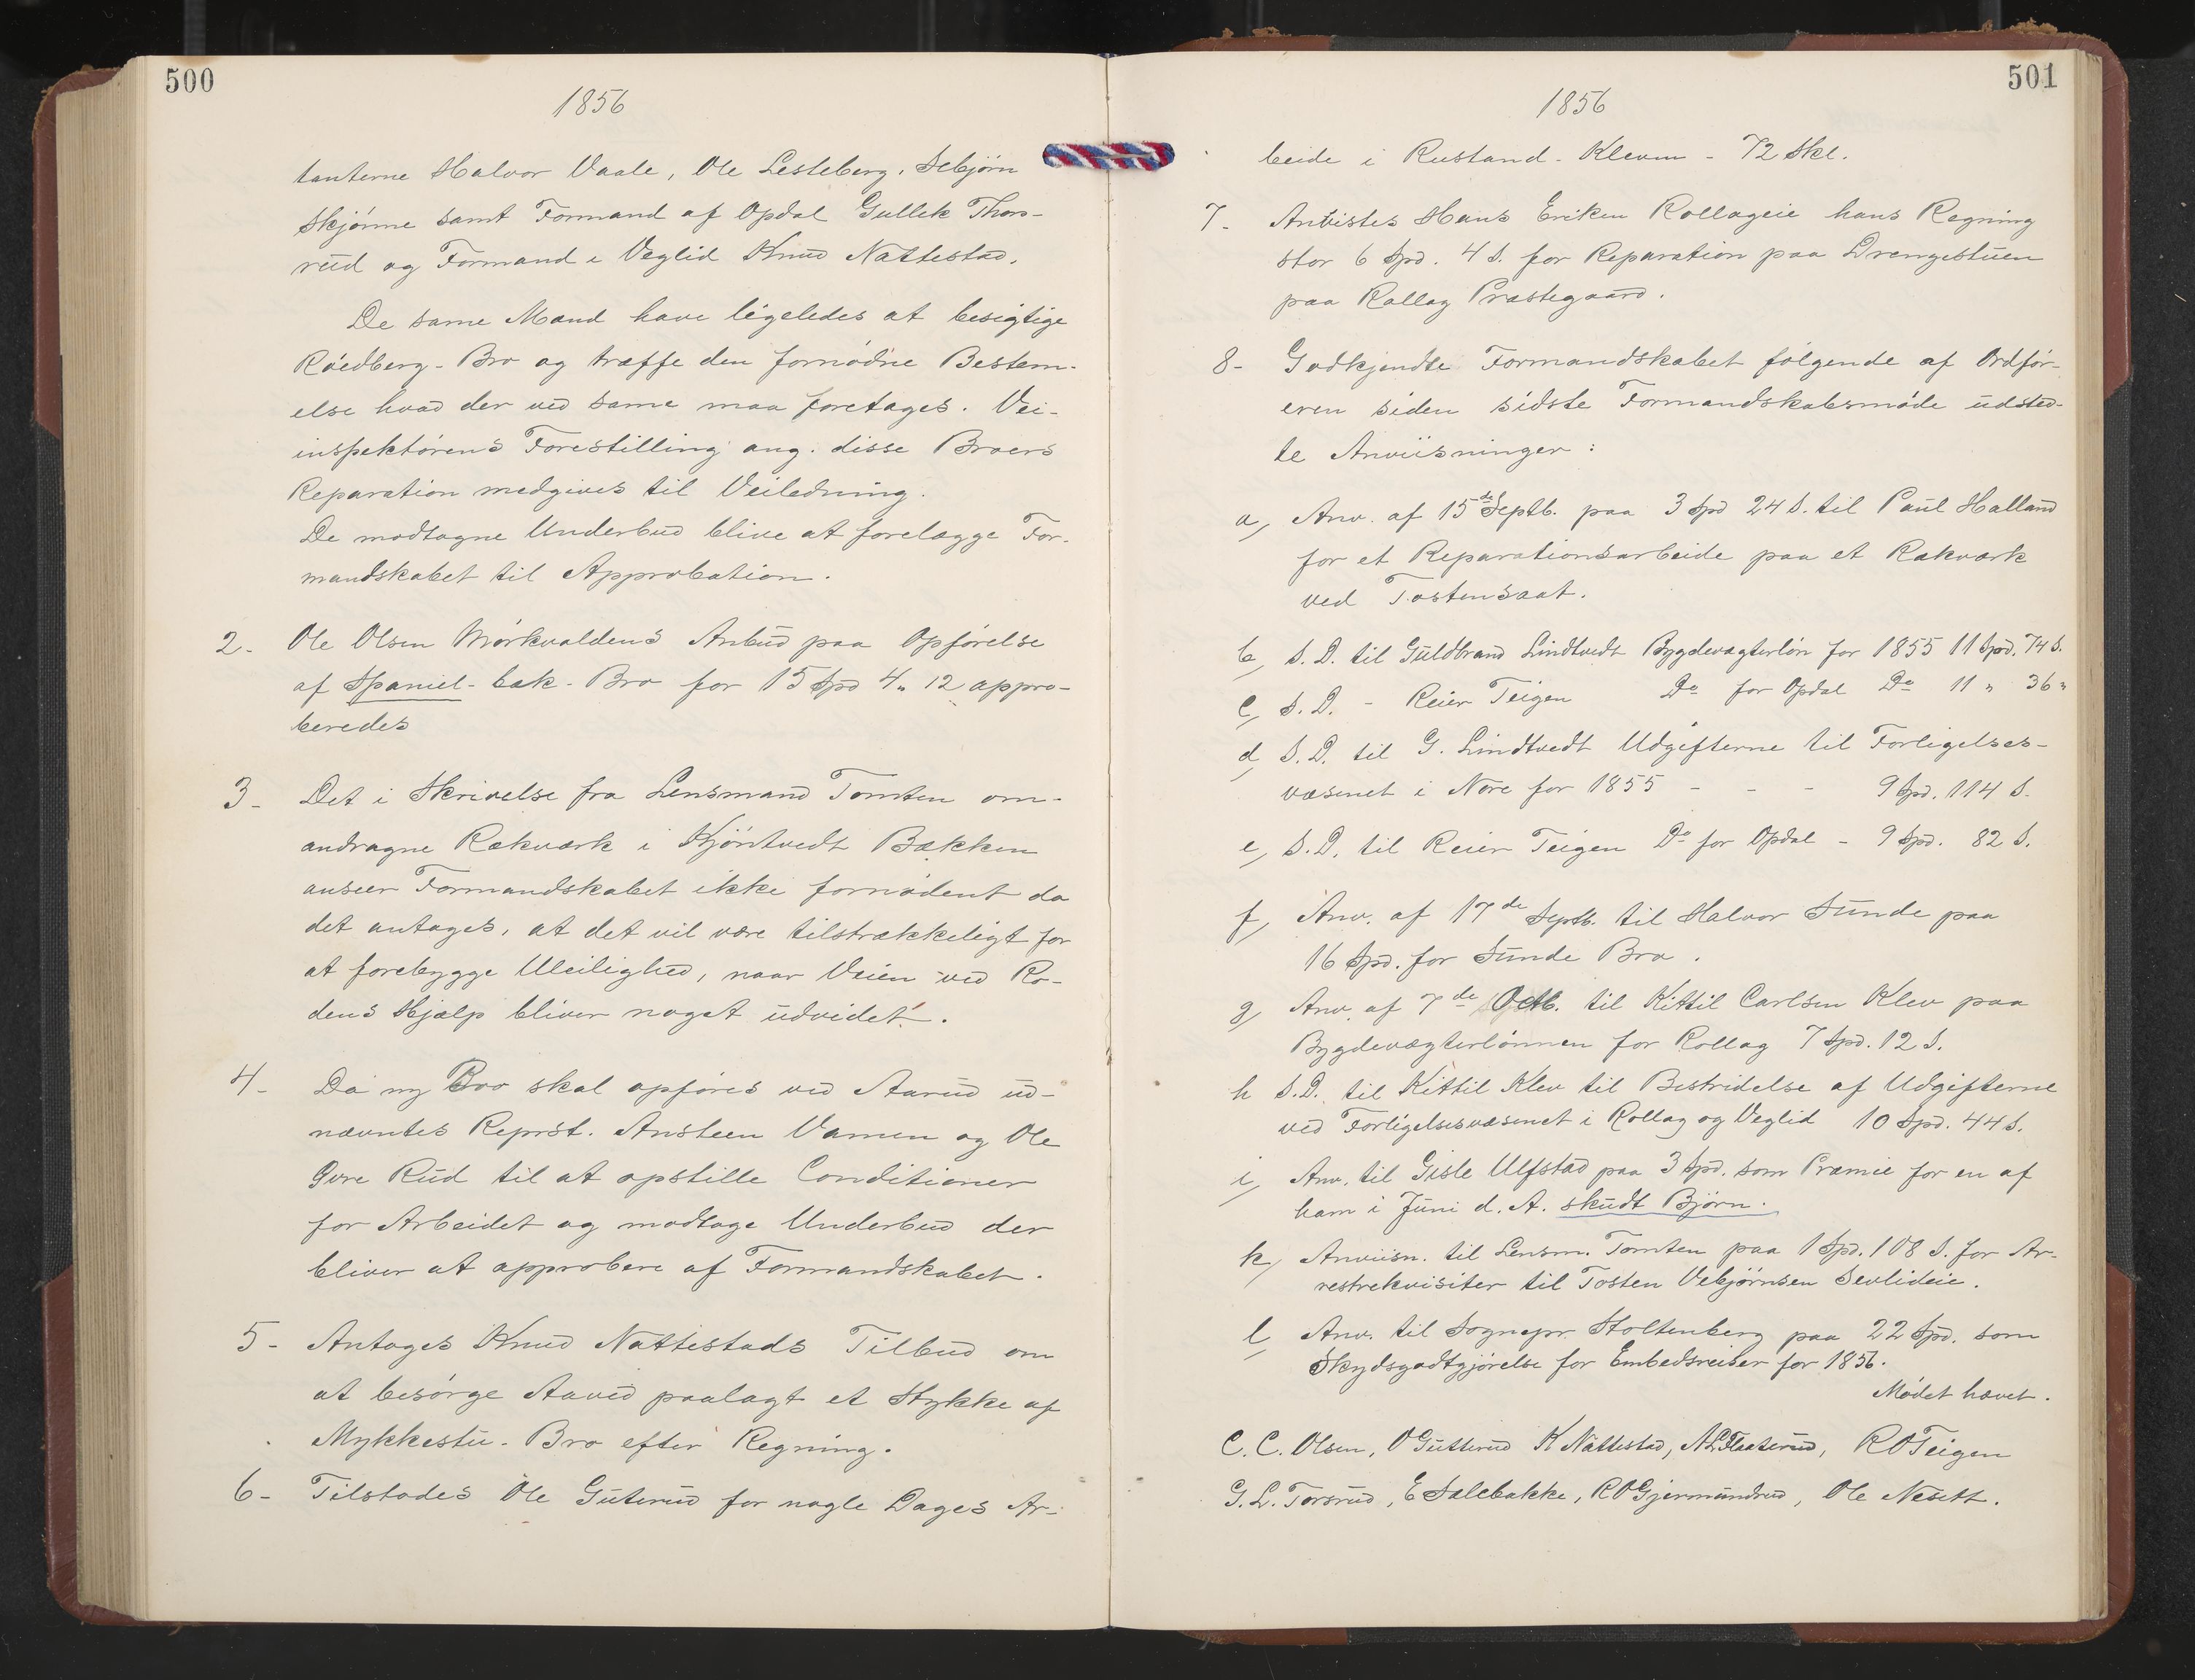 500
1856
tanterne Halvor Vaale, Ole Lesteberg, Sebjörn
Skjönne samt Formand af Opdal Gullek Thors-
rud og Formand i Veglid Knud Nattestad.
De same Mænd have ligeledes at besigtige
Rödberg-Bro og træffe den fornödne Bestem-
else hvad der ved same maa foretages. Vei-
inspektörens Forestilling ang. disse Broers
Reparation medgives til Veiledning.
De modtagne Underbud blive at forelægge For-
mandskabet til Approbation.
2- Ole Olsen Mörkvoldens Anbud paa Opförelse
af Spaniel-bæk-Bro for 15 Spd 4 " 12 appro-
beredes
3- Det i Skrivelse fra Lensmand Tomten om-
andragne Rækværk i Kjöntvedt Bækken
anseer Formandskabet ikke fornödent da
det antages, at det vil være tilstrækkeligt for
at forebygge Uleilighed, naar Veien ved Ro-
dens Hjælp bliver noget udvidet.
4- Da ny Bro skal opföres ved Aarud ud-
nævntes Reprst. Ansteen Vamen og Ole
Gvre Rud til at opstille Conditioner
for Arbeidet og modtage Underbud der
bliver at approbere af Formandskabet.
5- Antoges Knud Nattestads Tilbud om
at besörge Aaved paalagt et Stykke af
Mykkestu-Bro efter Regning.
6- Tilstodes Ole Guterud for nogle Dages Ar-
501
1856
beide i Rustand-Kleven - 72 Skl.
7- Anvistes Hans Eriken Rollageie hans Regning
stor 6 Spd. 4 S. for Reparation paa Drengestuen
paa Rollag Præstegaard.
8- Godkjendte Formandskabet fölgende af Ordför-
eren siden sidste Formandskabsmöde udsted-
te Anviisninger:
a, Anv. af 15de Septb. paa 3 Spd 24 S. til Paul Halland
for et Reparationsarbeide paa et Rækværk
ved Tostensaat.
b, S. D. til Guldbrand Lindtvedt Bygdevægterlön for 1855 11 Spd. 74 S.
c, S. D. - Reier Teigen Do for Opdal Do 11 " 36 "
d, S. D. til G. Lindtvedt Udgifterne til Forligelses-
væsenet i Nore for 1855 - - - 9 Spd. 114 S.
e, S. D. til Reier Teigen Do for Opdal - 9 Spd. 82 S.
f, Anv. af 17de Septb. til Halvor Sunde paa
16 Spd. for Sunde Bro.
g, Anv. af 7de Octb. til Kittil Carlsen Klev paa
Bygdevægterlönnen for Rollag 7 Spd. 12 S.
h S.D. til Kittil Klev til Bestridelse af Udgifterne
ved Forligelsesvæsenet i Rollag og Veglid 10 Spd. 44 S.
i, Anv. til Gisle Ulfstad paa 3 Spd. som Præmie for en af
ham i Juni d. A. skudt Björn.
k, Anviisn. til Lensm. Tomten paa 1 Spd. 108 S. for Ar-
restrekvisiter til Tosten Vebjörnsen Sevlideie.
l, Anv. til Sognepr. Stoltenberg paa 22 Spd. som
Skydsgodtgjörelse for Embedsreiser for 1856.
Mödet hævet.
C. C. Olsen, O Gutterud K Nattestad, N L Flaaterud, R O Teigen
G. L. Torsrud, E Salebakke, R O Gjermundrud, Ole Nesett.